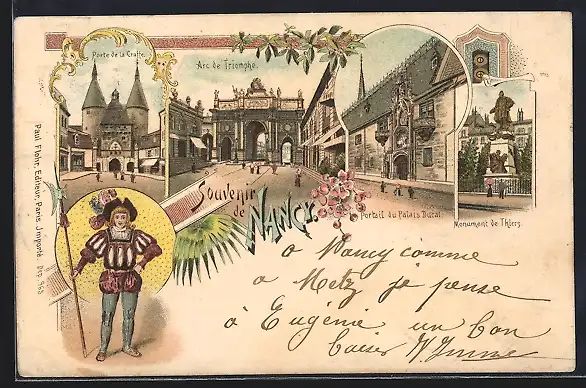 Porte de la Craffe.
Arc de Triomphe.
Portail du Palais Ducal
Monument de Thiers
Souvenir
de NANCY.
Paul Flohr, Editeur, Paris. Importé. Dep. 963
à Nancy comme
a Metz je pense
à Eugénie un bon
baiser